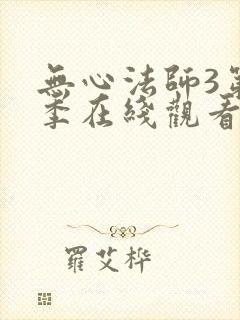 無心法師3第
季在綫觀看
羅艾桦